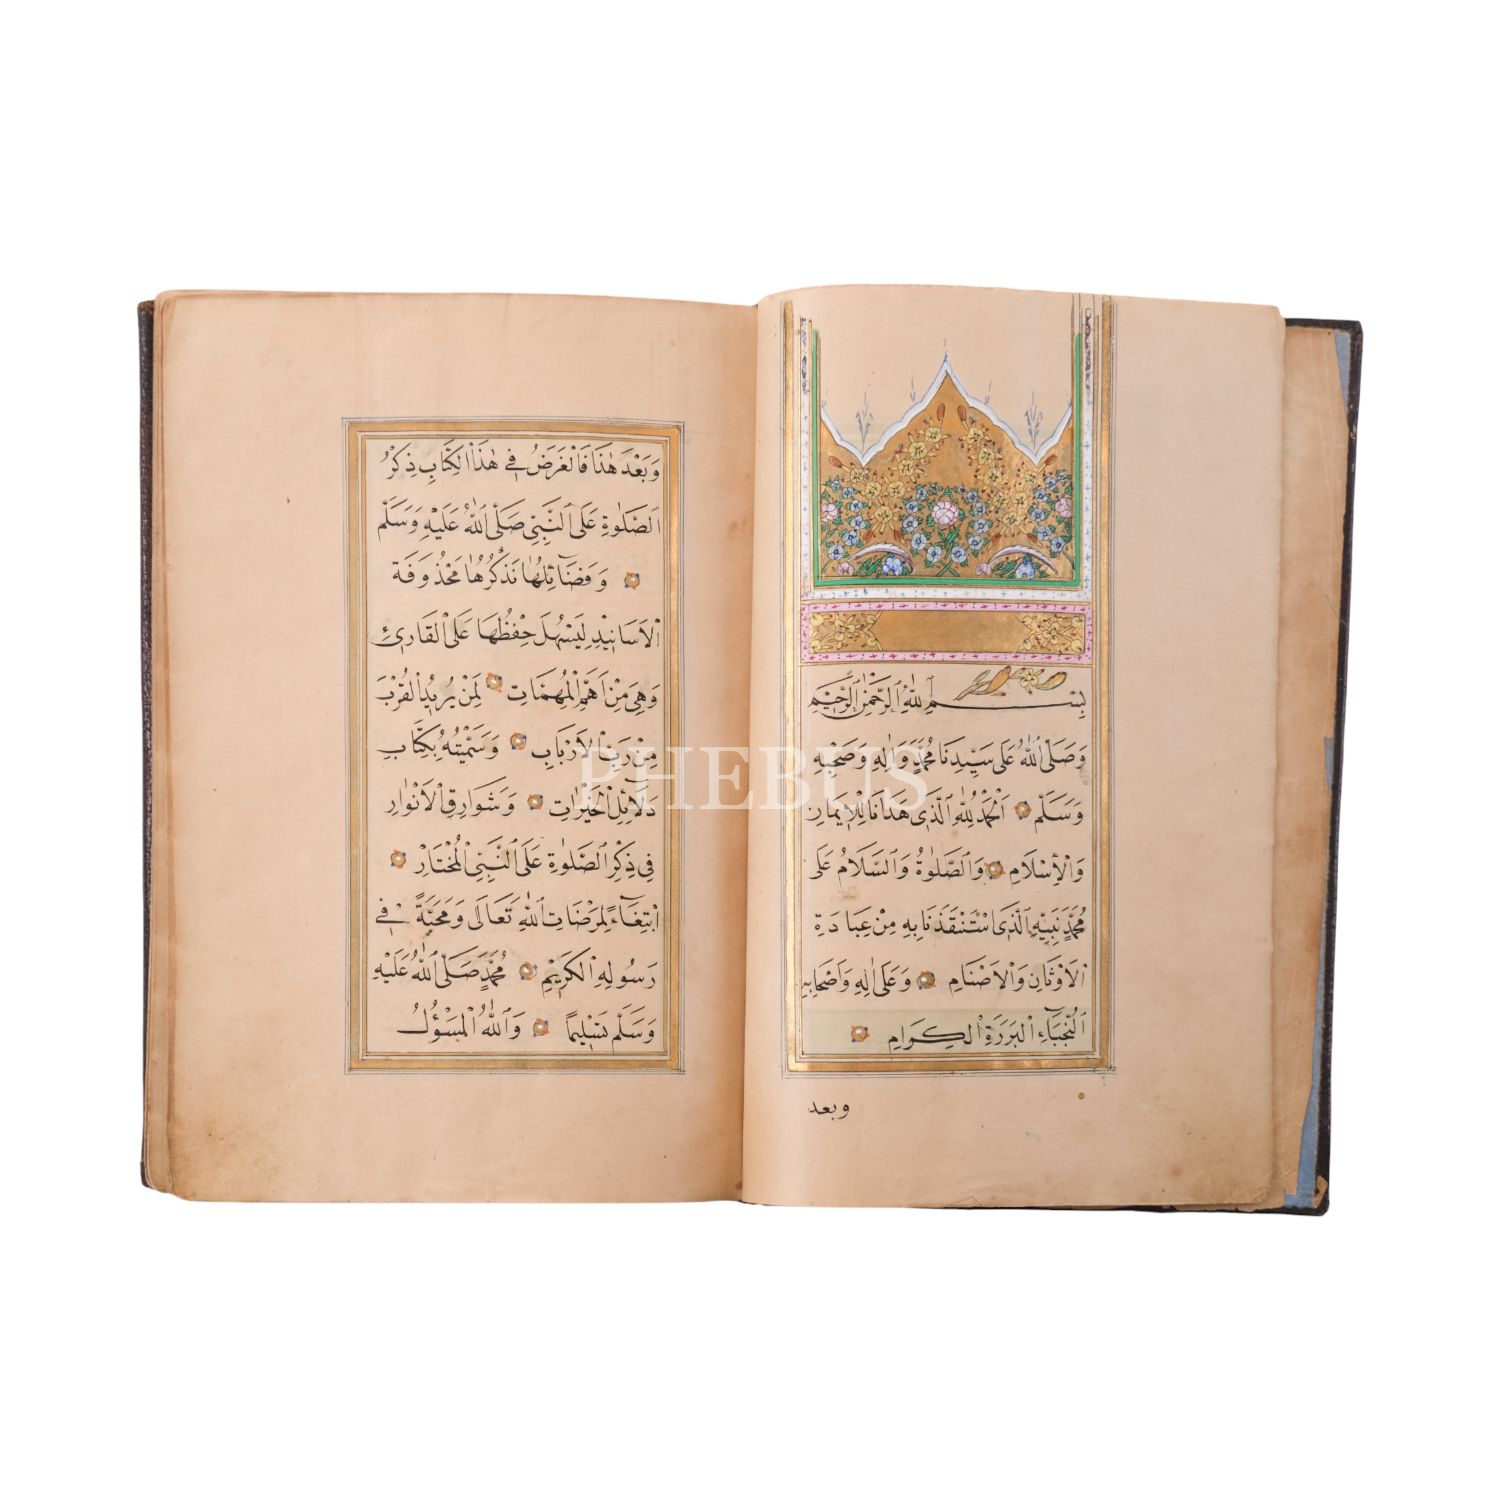 بِسْمِ اللّٰهِ الرَّحْمٰنِ الرَّحٖيمِ
وَصَلَّى اللّٰهُ عَلٰى سَيِّدِنَا مُحَمَّدٍ وَاٰلِهٖ وَصَحْبِهٖ
وَسَلَّمَ اَلْحَمْدُ لِلّٰهِ الَّذٖى هَدَانَا لِلْاٖيمَانِ
وَالْاِسْلَامِ وَالصَّلٰوةُ وَالسَّلَامُ عَلٰى
مُحَمَّدٍ نَبِيِّهِ الَّذٖى اسْتَنْقَذَنَا بِهٖ مِنْ عِبَادَةِ
الْاَوْثَانِ وَالْاَصْنَامِ وَعَلٰى اٰلِهٖ وَاَصْحَابِهِ
النُّجَبَٓاءِ الْبَرَرَةِ الْكِرَامِ
وبعد
وَبَعْدَ هٰذَا فَالْغَرَضُ فٖى هٰذَا الْكِتَابِ ذِكْرُ
الصَّلٰوةِ عَلَى النَّبِيِّ صَلَّى اللّٰهُ عَلَيْهِ وَسَلَّمَ
وَفَضَٓائِلُهَا نَذْكُرُهَا مَحْذُوفَةَ
الْاَسَانٖيدِ لِيَسْهُلَ حِفْظُهَا عَلَى الْقَارِئِ
وَهِىَ مِنْ اَهَمِّ الْمُهِمَّاتِ لِمَنْ يُرٖيدُ الْقُرْبَ
مِنْ رَبِّ الْاَرْبَابِ وَسَمَّيْتُهُ بِكِتَابِ
دَلَائِلِ الْخَيْرَاتِ وَشَوَارِقِ الْاَنْوَارِ
فٖى ذِكْرِ الصَّلٰوةِ عَلَى النَّبِيِّ الْمُخْتَارِ
ابْتِغَٓاءً لِمَرْضَاتِ اللّٰهِ تَعَالٰى وَمَحَبَّةً فٖى
رَسُولِهِ الْكَرٖيمِ مُحَمَّدٍ صَلَّى اللّٰهُ عَلَيْهِ
وَسَلَّمَ تَسْلٖيمًا وَاللّٰهُ الْمَسْؤُلُ
PHEBUS